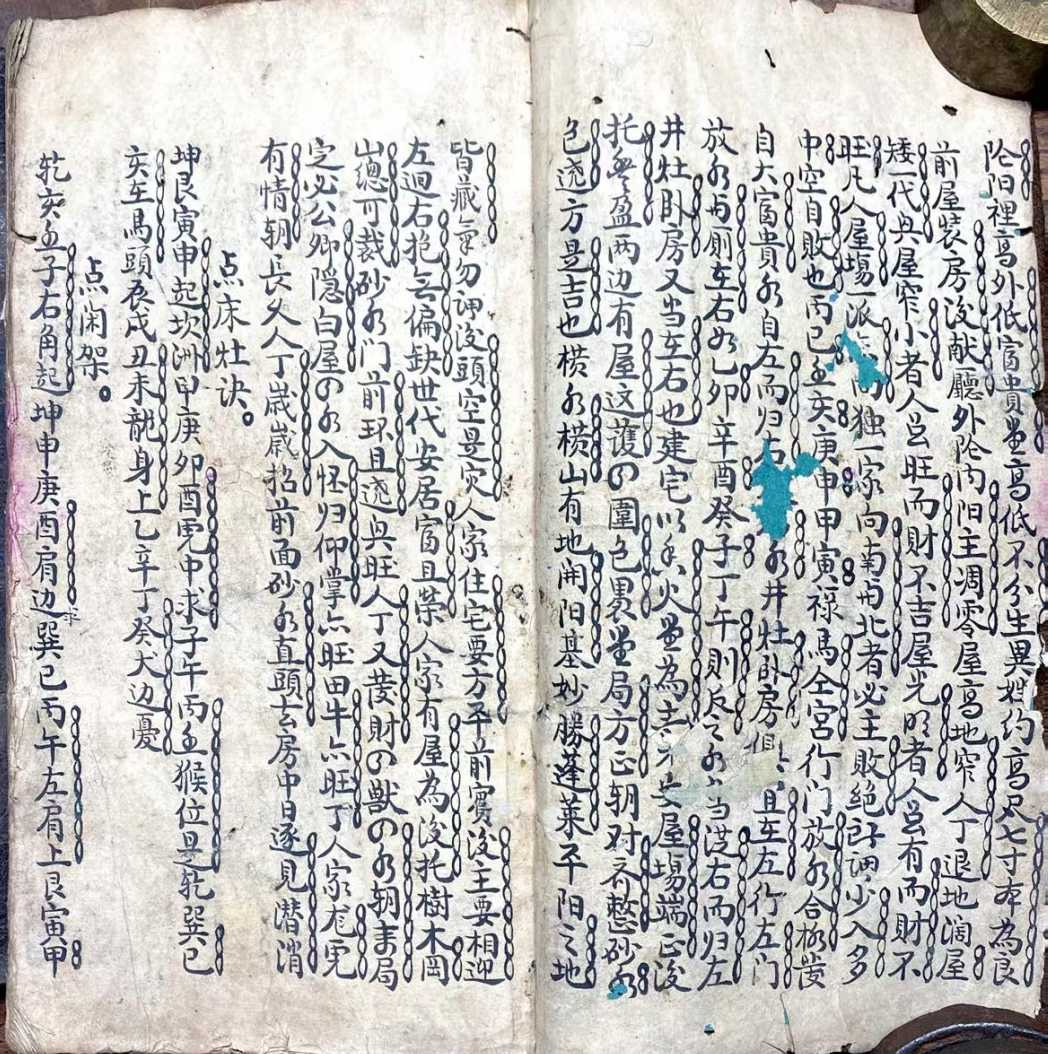 阳裡高外低富貴量高低不分生異姓约高尺七寸本為良
前屋装房後献廳外陰内阳主凋零屋高地窄人丁退地濶屋
矮一代兴屋窄小者人旺而財不吉屋光明者人有而財不
旺凡人屋場一派独一家向南与北者必主敗绝少入多
中空自敗也丙巳亥庚申甲寅禄馬仝宮行门放水合發
自大富貴水自左而归右水井灶卧房且在左行左门
放水与厠在右如乙卯辛酉癸子丁午則反之水当从右而归左
井灶卧房又当在右也建宅以水火為安屋場端正後
托盈两边有屋这護圍包裏局方正朝对齐整砂水
包遶方是吉也横水横山有地開阳基妙勝蓬莱平阳之地
皆藏勿後頭空是灾人家住宅要方平前賓後主要相迎
左迴右抱无偏缺世代安居富且荣人家有屋為後托樹木岡
山總可裁砂水门前环且遶兴旺人丁又發財獸水朝局
定必公卿隐白屋水入怀归仰掌亦旺田牛亦旺丁人家
有情朝長久人丁歳歳招前面砂水直頭去房中日逐見潜消
点床灶诀。
坤艮寅申起坎洲甲庚卯酉兜中求子午丙壬猴位是乾巽巳
亥在馬頭辰戌丑未龍身上乙辛丁癸犬边憂
点闲架。
乾亥壬子右角起坤申庚酉肩边巽巳丙午左肩上艮寅甲